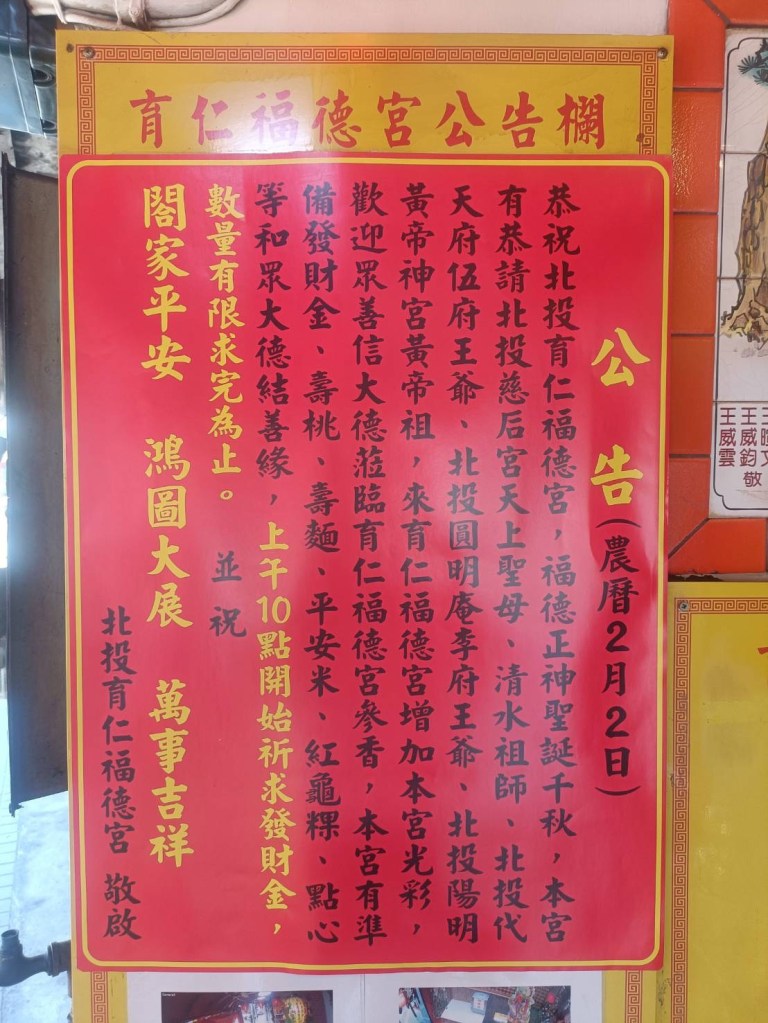 育仁福德宮公告欄
公告(農曆2月2日)
恭祝北投育仁福德宮，福德正神聖誕千秋，本宮
有恭請北投慈后宮天上聖母、清水祖師、北投代
天府伍府王爺、北投圓明庵李府王爺、北投陽明
黃帝神宮黃帝祖，來育仁福德宮增加本宮光彩，
歡迎眾善信大德蒞臨育仁福德宮參香，本宮有準
備發財金、壽桃、壽麵、平安米、紅龜粿、點心
等和眾大德結善緣，上午10點開始祈求發財金，
數量有限求完為止。 並祝
閤家平安 鴻圖大展 萬事吉祥
北投育仁福德宮 敬啟
王威鈞敬
王威雲